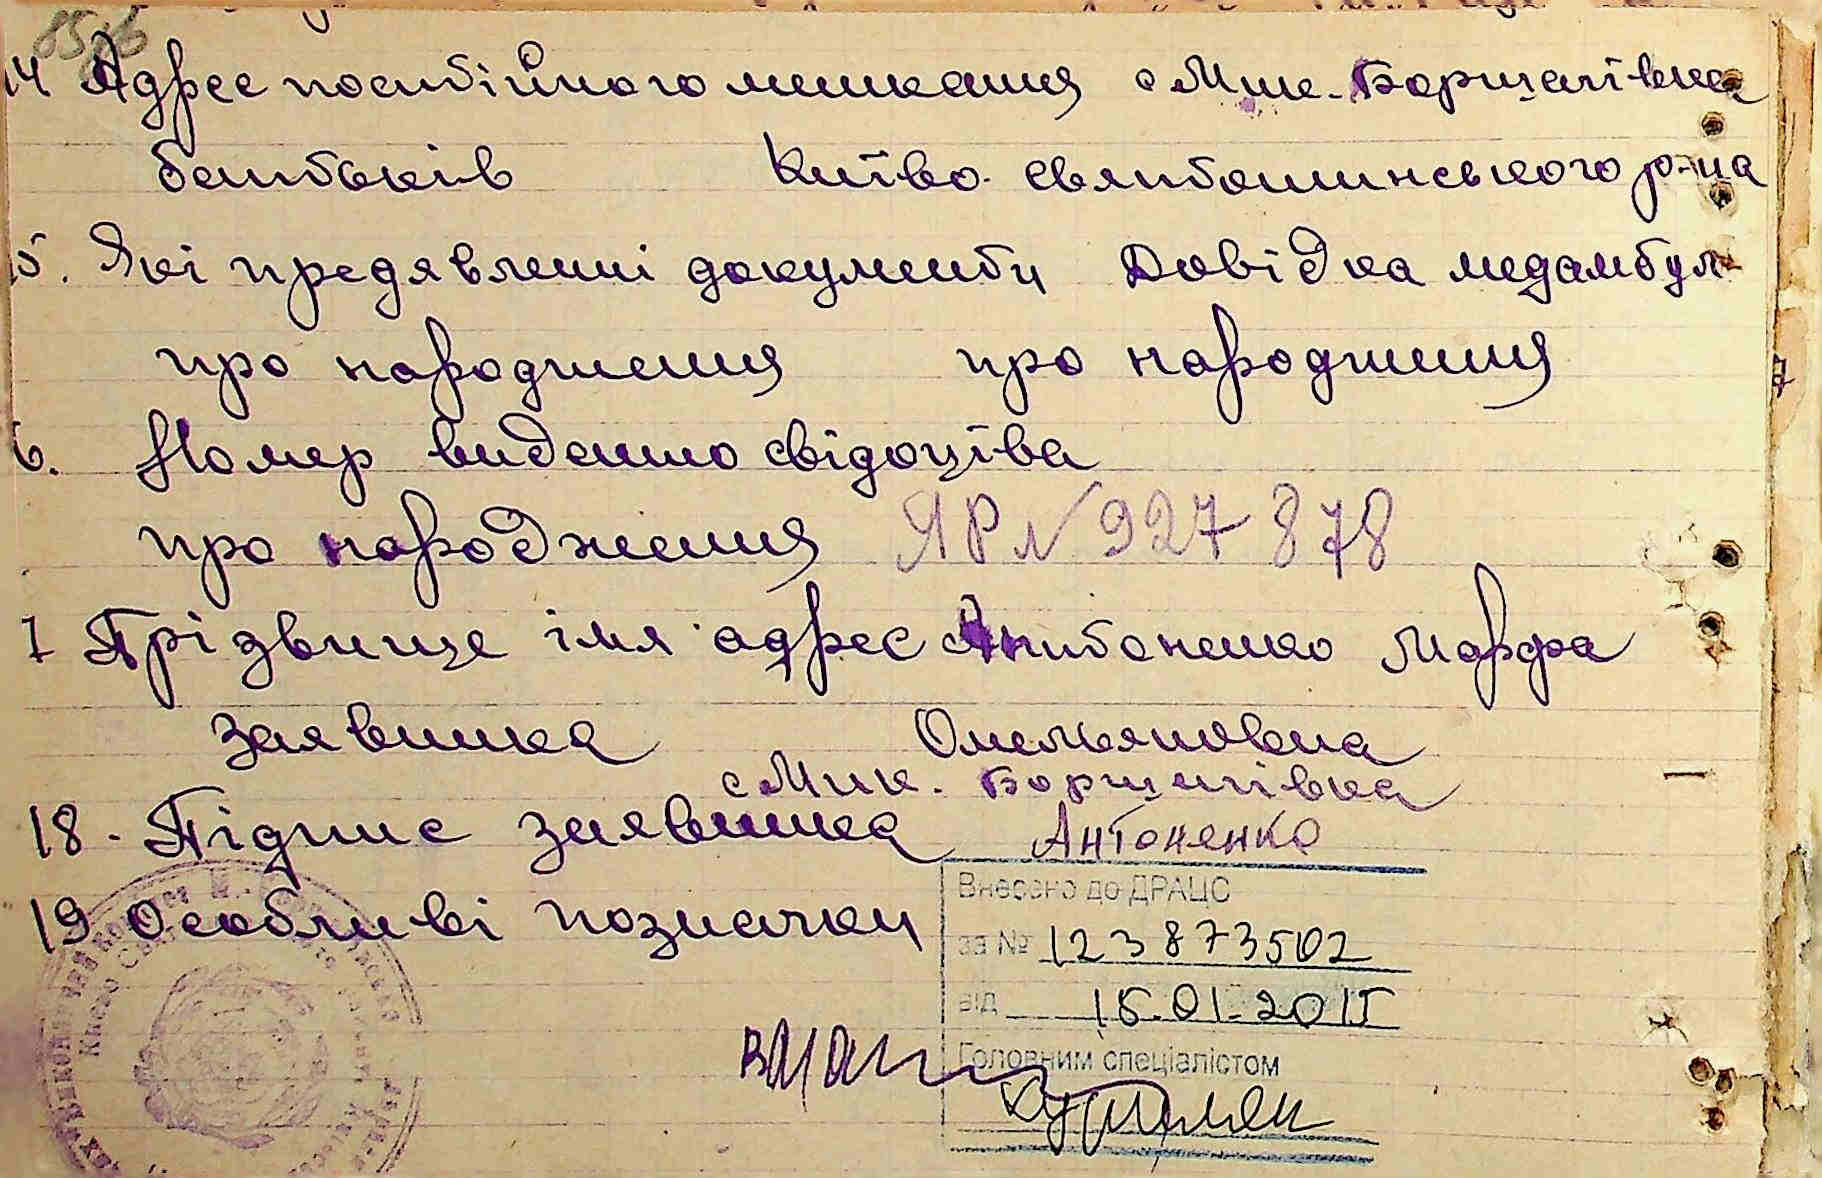 85об
14 Адрес постійного мешкання с Мик. Борщагівка
батьків Київо. Святошинського р-на
15. Які предявленні документи Довідка медамбул
про народження про народження
6. Номер виданно свідоцтва
про народження ЯР № 927 878
7 Прізвище імя адрес Антоненко Марфа
заявника Омельяновна
с Мик. Борщагівка
18. Підпис заявника Антоненко
19 Особливі позначки
Внесено до ДРАЦС
за № 123873502
від 15.01.2015
Головним спеціалістом